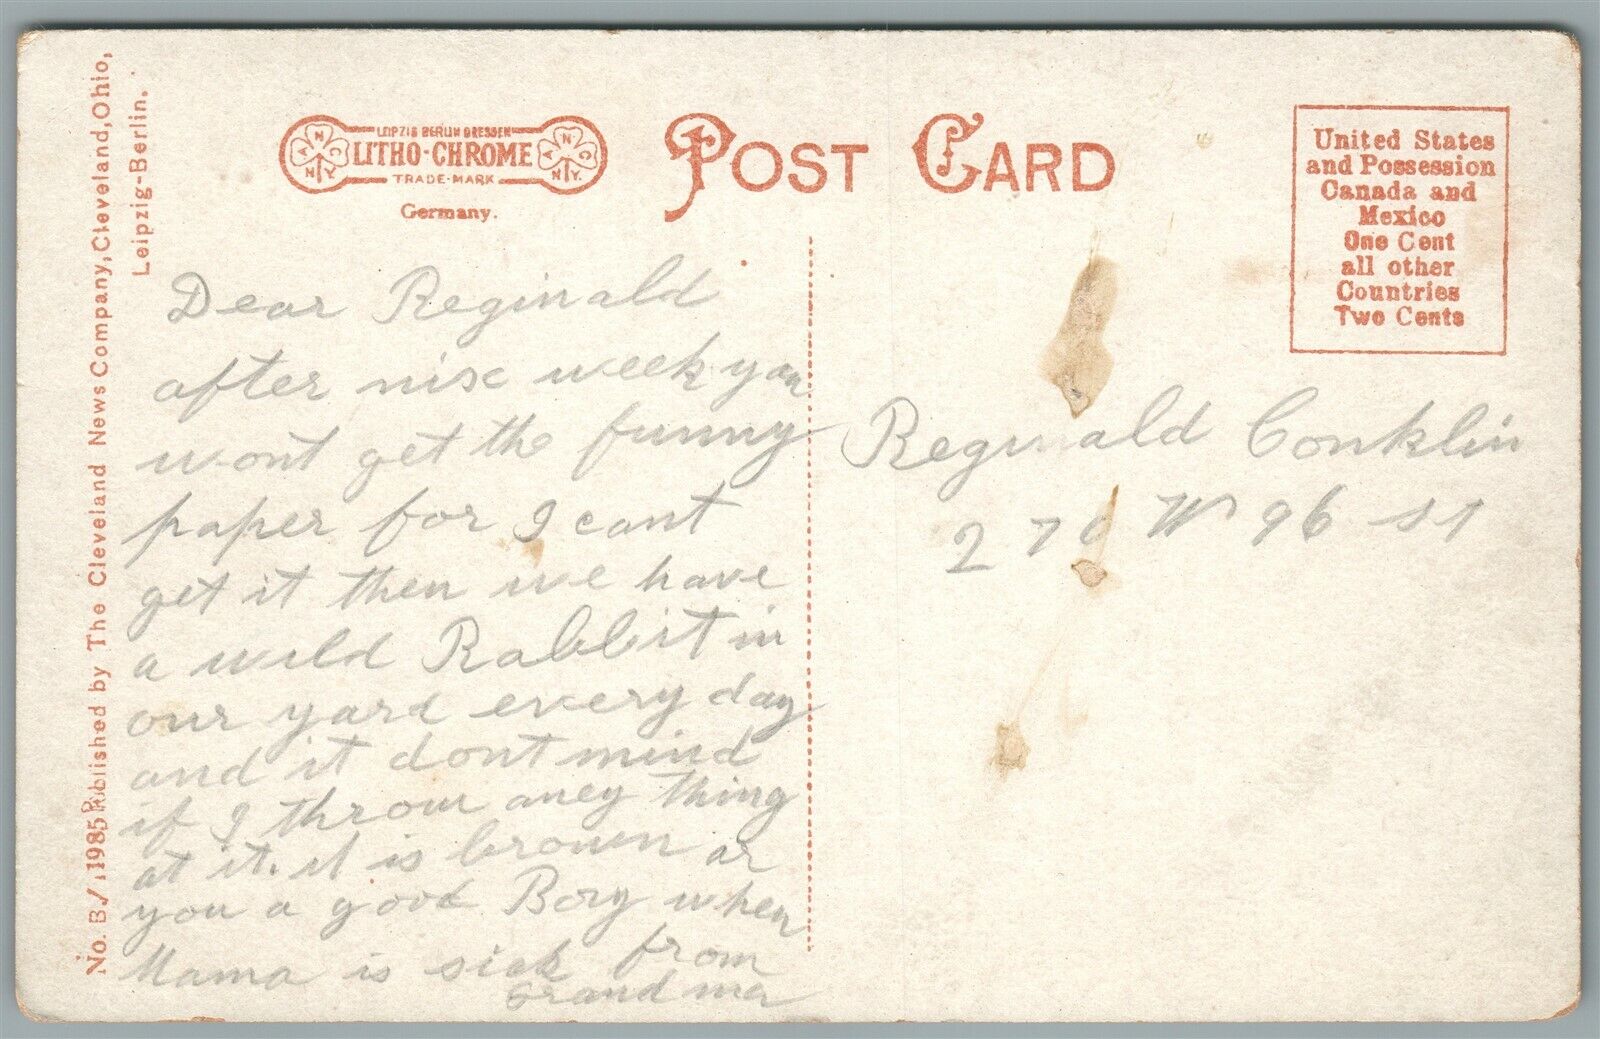 No. B/11985 Published by The Cleveland News Company, Cleveland, Ohio,
Leipzig-Berlin.
LEIPZIG BERLIN DRESDEN
LITHO-CHROME
TRADE-MARK
ANCNY
ANCNY.
Germany.
POST CARD
United States
and Possession
Canada and
Mexico
One Cent
all other
Countries
Two Cents
Dear Reginald
after nise week you
wont get the funny
paper for I cant
get it then we have
a wild Rabbit in
our yard every day
and it dont mind
if I throw aney thing
at it. it is brown ar
you a good Bory when
Mama is sick from
Grand mar
Reginald Conklin
270 W 96 st